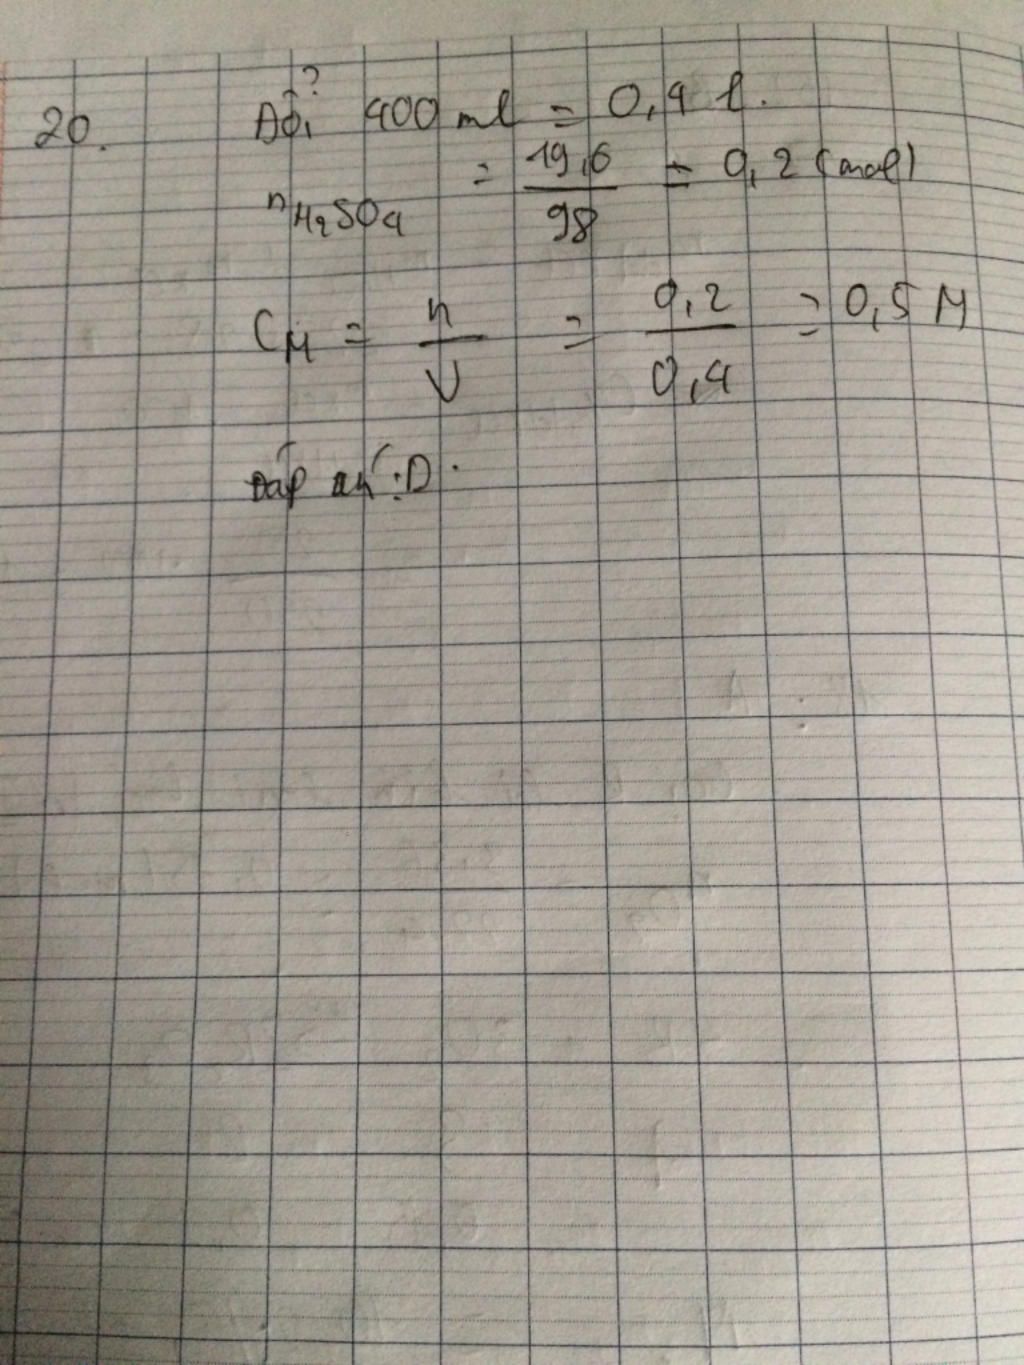 20. Đổi 400 ml = 0,4 l.
nH2SO4 = 19,6 / 98 = 0,2 (mol)
CM = n / V = 0,2 / 0,4 = 0,5 M
Đáp án : D.